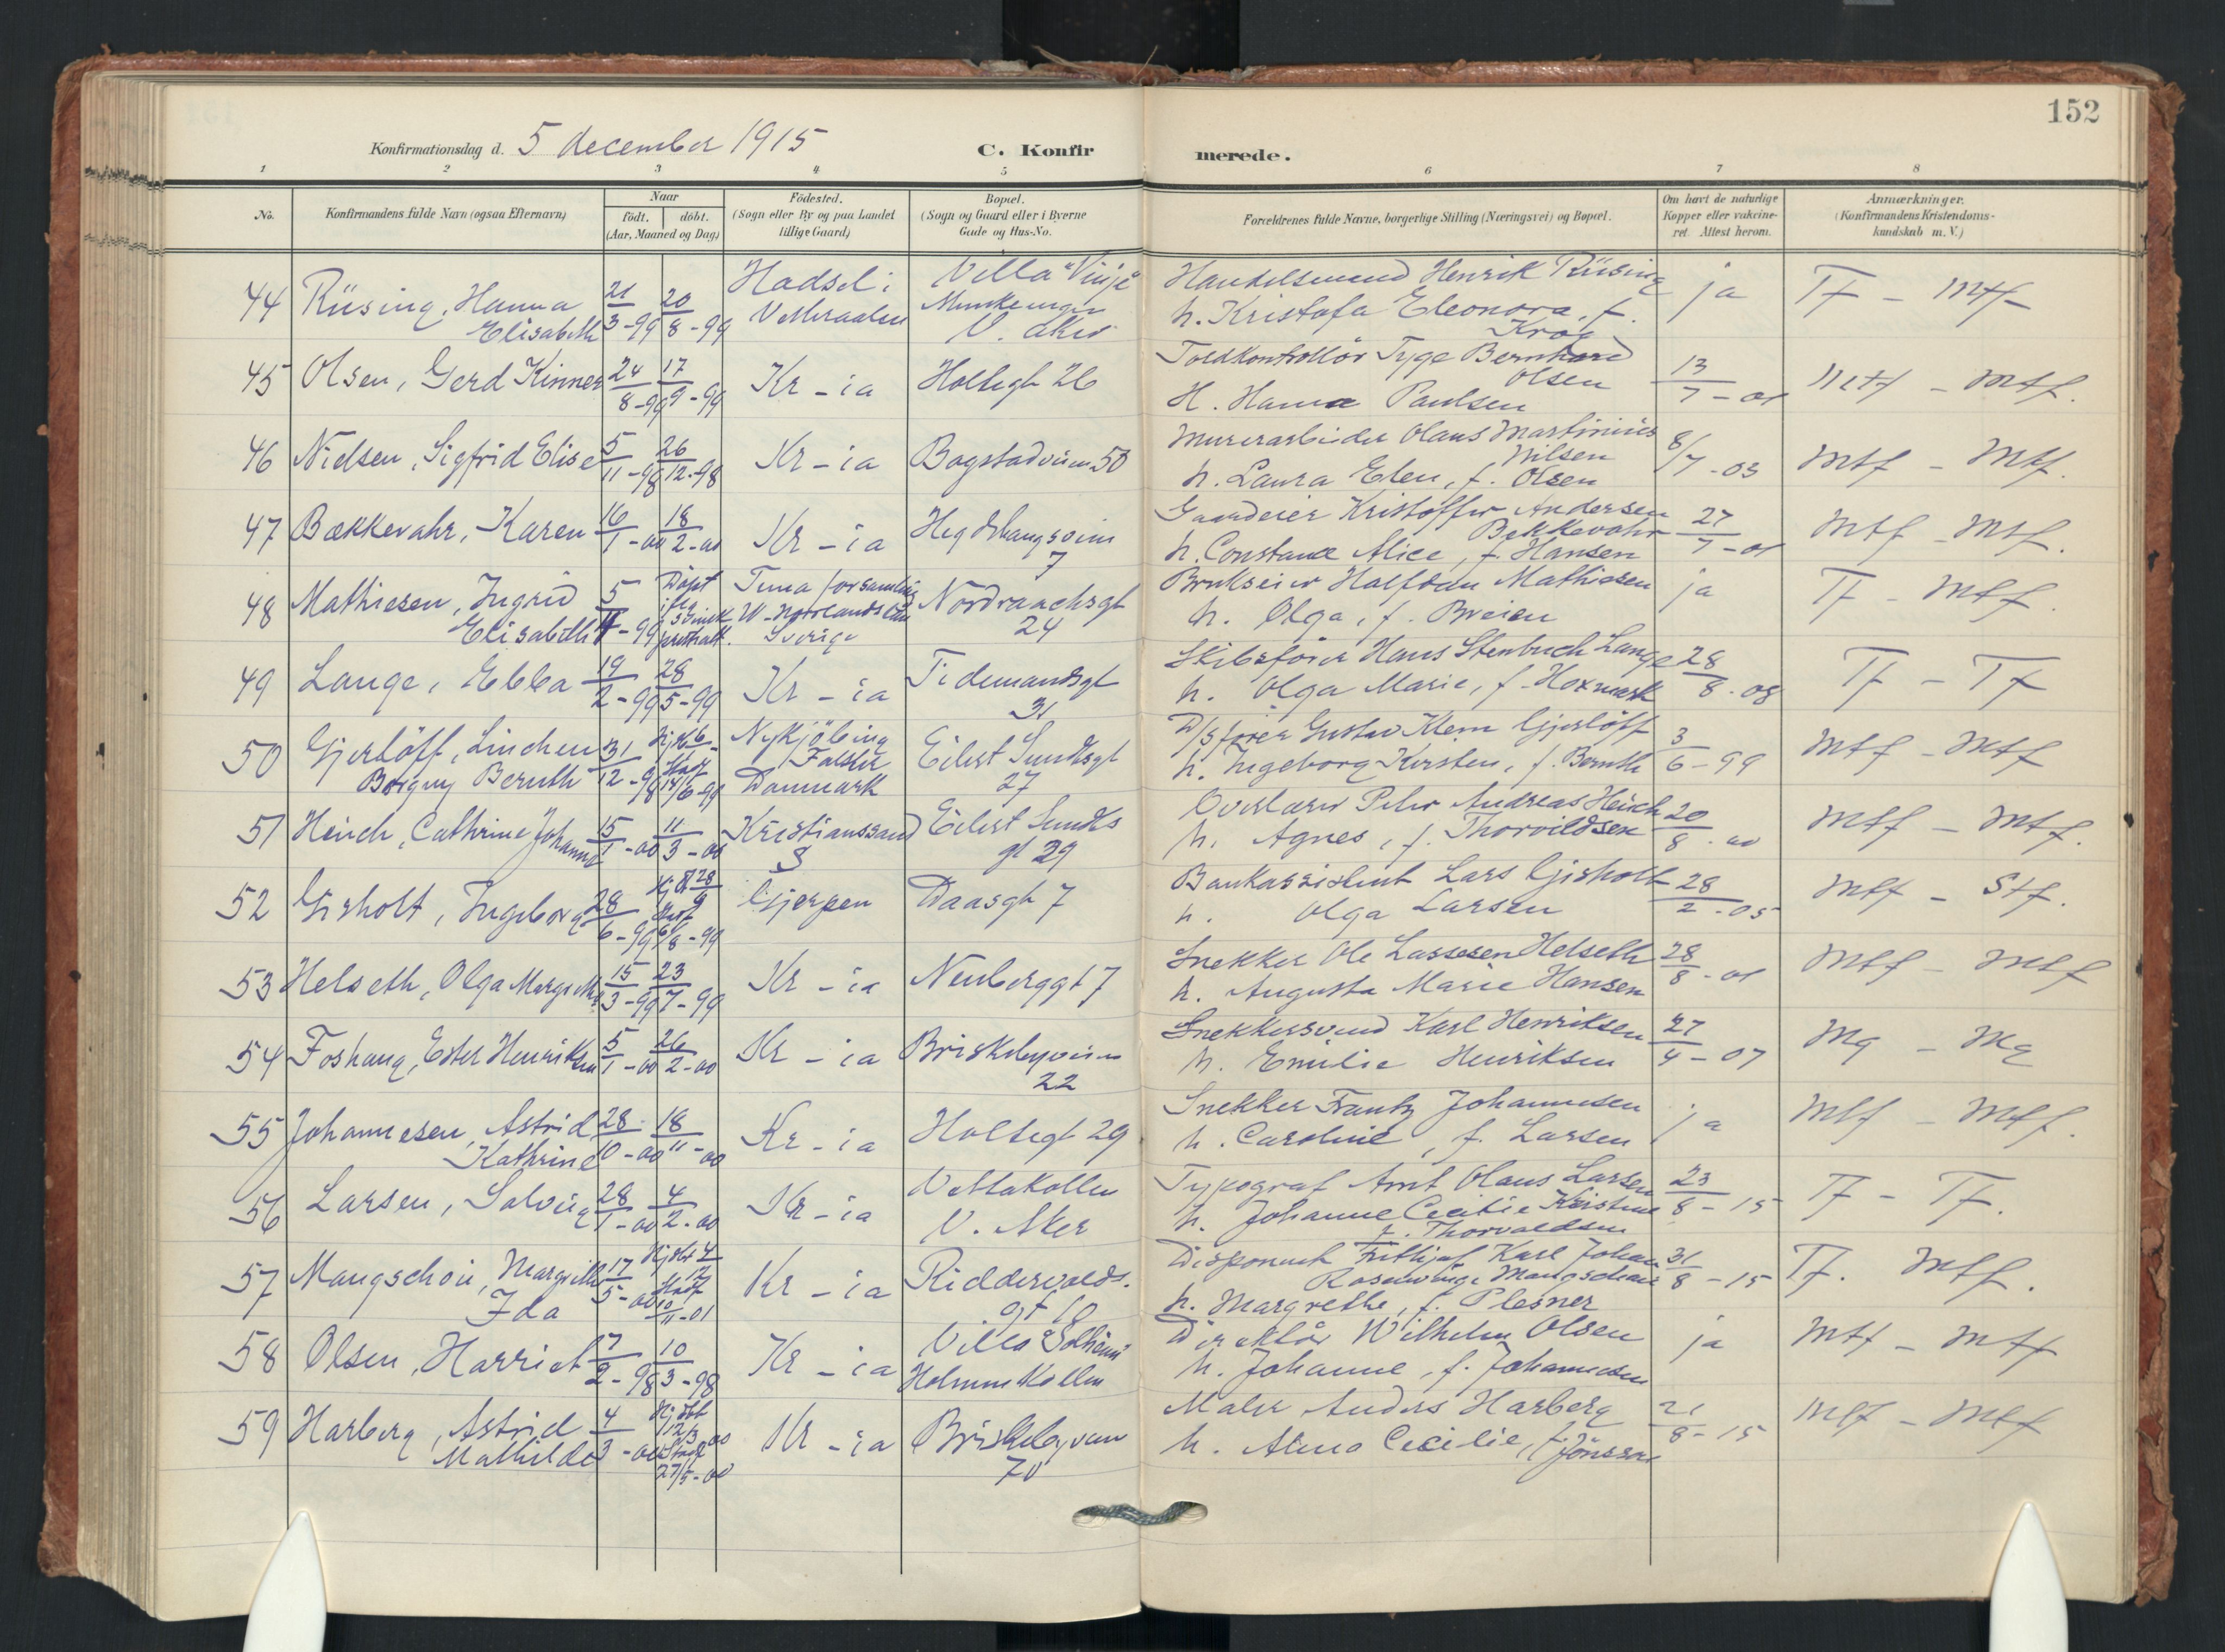 152
Konfirmationsdag d. 5 december 1915 C. Konfirmerede.
1 2 3 4 5 6 7 8
No. Konfirmandens fulde Navn (ogsaa Efternavn) Naar Födested. Bopæl. Forældrenes fulde Navne, borgerlige Stilling (Næringsvei) og Bopæl. Om havt de naturlige Anmærkninger.
födt. döbt. (Sogn eller By og paa Landet (Sogn og Gaard eller i Byerne Kopper eller vakcine- (Konfirmandens Kristendoms-
(Aar, Maaned og Dag) tillige Gaard) Gade og Hus-No. ret. Attest herom. kundskab m. V.)
44 Rüsing, Hanna 21 20 Hadsel i Villa "Vinje" Handelsmand Henrik Rüsing ja Tf - Mtf
Elisabeth 3-99 8-99 Vesteraalen V. Aker h. Kristofa Eleonora, f.
Krog
45 Olsen, Gerd Kinner 24 17 Kr-ia Holtegt 26 Toldkontrollör Tyge Bernhard 13 Mtf - Mtf.
8-99 9-99 Olsen 7-01
H. Hanna Paulsen
46 Nielsen, Sigfrid Elise 5 26 Kr-ia Bogstadveien 50 Murerarbeider Olaus Martinius 8/7-03 Mtf - Mtf.
11-98 12-98 Nilsen
h. Laura Elen, f. Olsen
47 Bækkevahr, Karen 16 18 Kr-ia Hegdehaugsveien Gaardeier Kristoffer Andersen 27 Mtf - Mtf.
1-00 2-00 7 Bekkevahr 7-01
h. Constance Alice, f. Hansen
48 Mathiesen, Ingrid 5 Döpt Tuna forsamling Nordraachsgt Brukseier Halfdan Mathiesen ja Tf - Mtf.
Elisabeth -99 W-Norlands Län 24 h. Olga, f. Breien
Sverige
49 Lange, Ebba 19 28 Kr-ia Tidemandsgt Skibsförer Hans Stenbuch Lange 28 Tf - Tf
2-99 5-99 31 h. Olga Marie, f. Hoxmark 8-08
50 Gjerlöff, Linchen 31 Hj.db 6 Nykjöbing Eilert Sundtsgt D/S förer Gustav Klem Gjerlöff 3 Mtf - Mtf
Borgny Bernth 12-98 14/6-99 Falster 27 h. Ingeborg Kirsten, f. Bernth 6-99
Danmark
51 Heuch, Cathrine Johanne 15 11 Kristianssand Eilert Sundts Overlærer Peter Andreas Heuch 20 Mtf - Mtf.
1-00 3-00 S gt 29 h. Agnes, f. Thorvildsen 8-00
52 Gisholt, Ingeborg 28 28 Gjerpen Daasgt 7 Bankassistent Lars Gisholt 28 Mtf - Stf.
6-99 /8-99 h. Olga Larsen 2-05
53 Helseth, Olga Margrethe 15 23 Kr-ia Neuberggt 7 Snekker Ole Lassesen Helseth 28 Mtf - Mtf
3-99 7-99 h. Augusta Marie Hansen 8-01
54 Foshaug, Ester Henriksen 5 26 Kr-ia Briskebyveien Snekkersvend Karl Henriksen 27 Mg - Mg
1-00 2-00 22 h. Emilie Henriksen 4-07
55 Johannesen, Astrid 28 18 Kr-ia Holtegt 29 Snekker Frantz Johannesen ja Mtf - Mtf.
Kathrine 10-00 11-00 h. Caroline, f. Larsen
56 Larsen, Solveig 28 4 Kr-ia Vettakollen Typograf Arnt Olaus Larsen 23 Tf - Tf.
1-00 2-00 V. Aker h. Johanne Cecilie Kristine 8-15
f. Thorvaldsen
57 Mangschou, Margrethe 17 Hj.dbt 4/12 Kr-ia Riddervolds- Disponent Frithjof Karl Johan 31 Tf. Mtf.
Ida 5-00 10/11-01 gt 10 Rosenvinge Mangschou 8-15
h. Margrethe, f. Plesner
58 Olsen, Harriet 17 10 Kr-ia Villa Solheim Direktör Wilhelm Olsen ja Mtf - Mtf
2-98 3-98 Holmenkollen h. Johanne, f. Johannesen
59 Harberg, Astrid 4 Hj.dbt Kr-ia Briskebyveien Maler Anders Harberg 21 Mtf - Mtf
Mathilde 3-00 12/3 00 70 h. Alma Cecilie, f. Jönsson 8-15
27/5-00